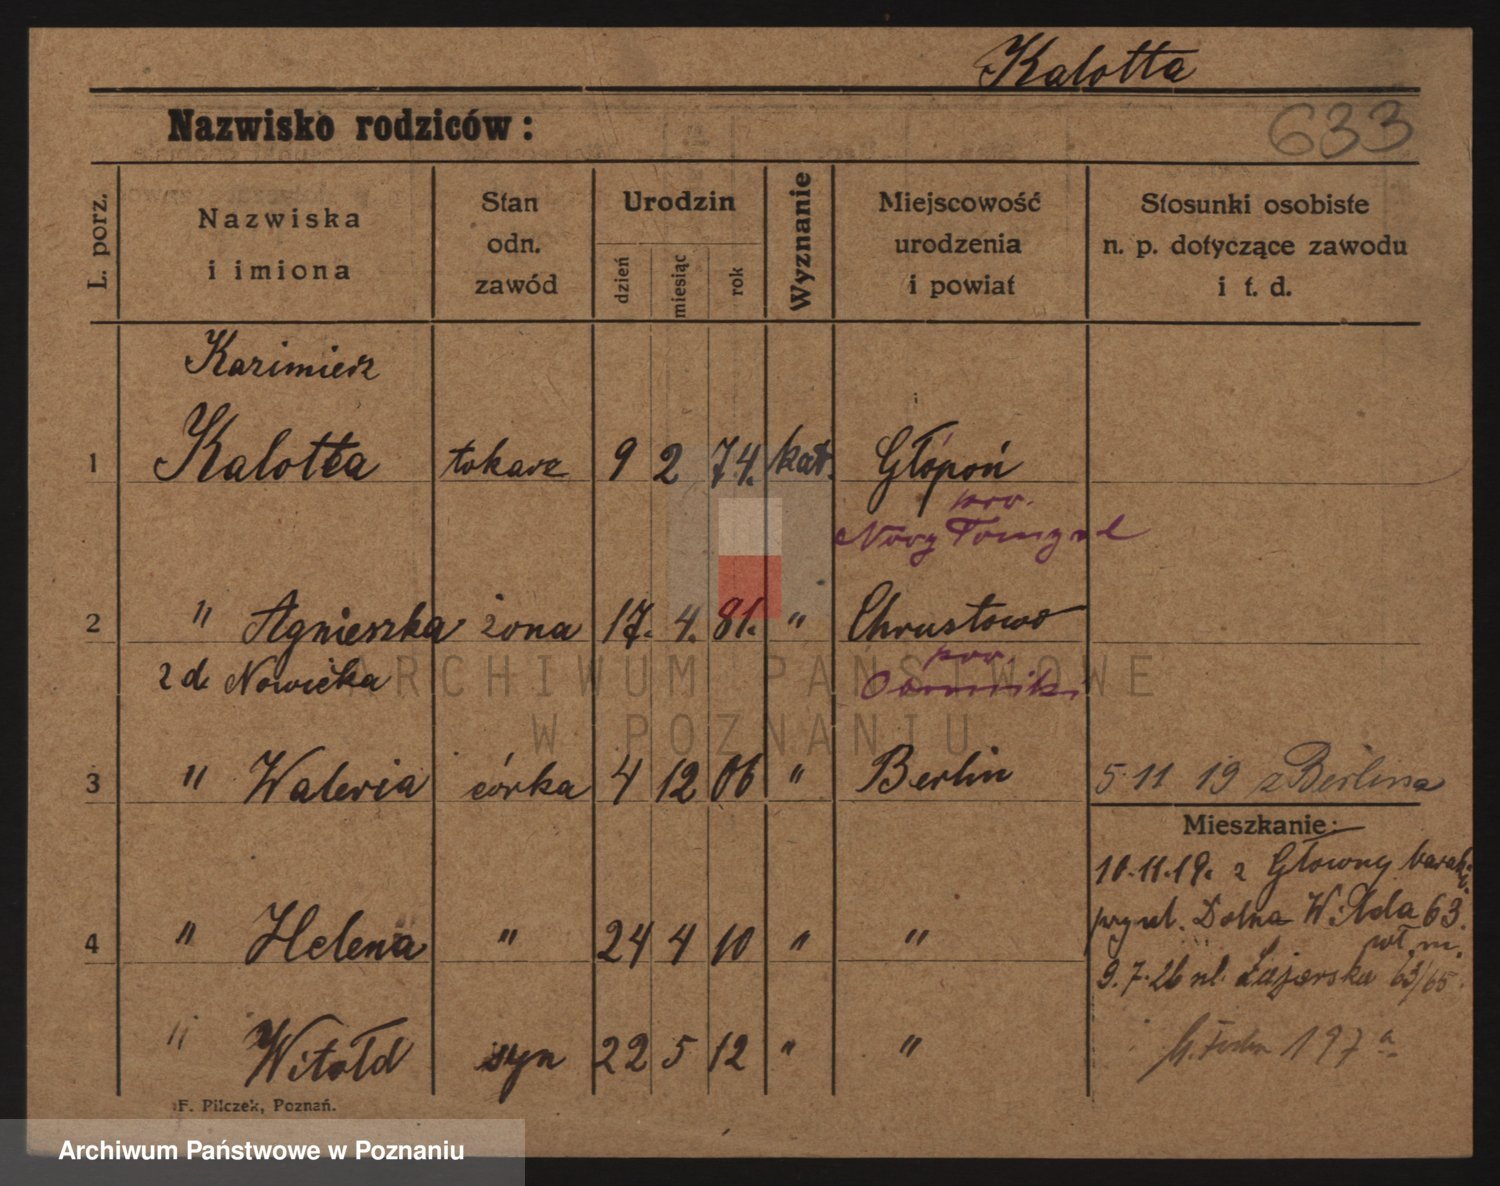 Kalotta
Nazwisko rodziców:
633
L. porz.
Nazwiska
i imiona
Stan
odn.
zawód
Urodzin
dzień
miesiąc
rok
Wyznanie
Miejscowość
urodzenia
i powiat
Stosunki osobiste
n. p. dotyczące zawodu
i t. d.
Kazimierz
1 Kalotta tokarz 9 2 74. kat. Głópoń
pow.
Nowy Tomysl
2 " Agnieszka żona 17. 4. 81. " Chrustowo
z d. Nowicka pow.
Oborniki
3 " Waleria córka 4 12 06 " Berlin 5 11 19 z Berlina
Mieszkanie:
10.11.19. z Główny barak
przy ul. Dolna Wilda 63.
wł. m.
4 " Helena " 24 4 10 " "
9.7.26 ul. Łazarska 63/65.
" Witold syn 22 5 12 " "
197 a
F. Pilczek, Poznań.
ARCHIWUM PAŃSTWOWE
W POZNANIU
Archiwum Państwowe w Poznaniu